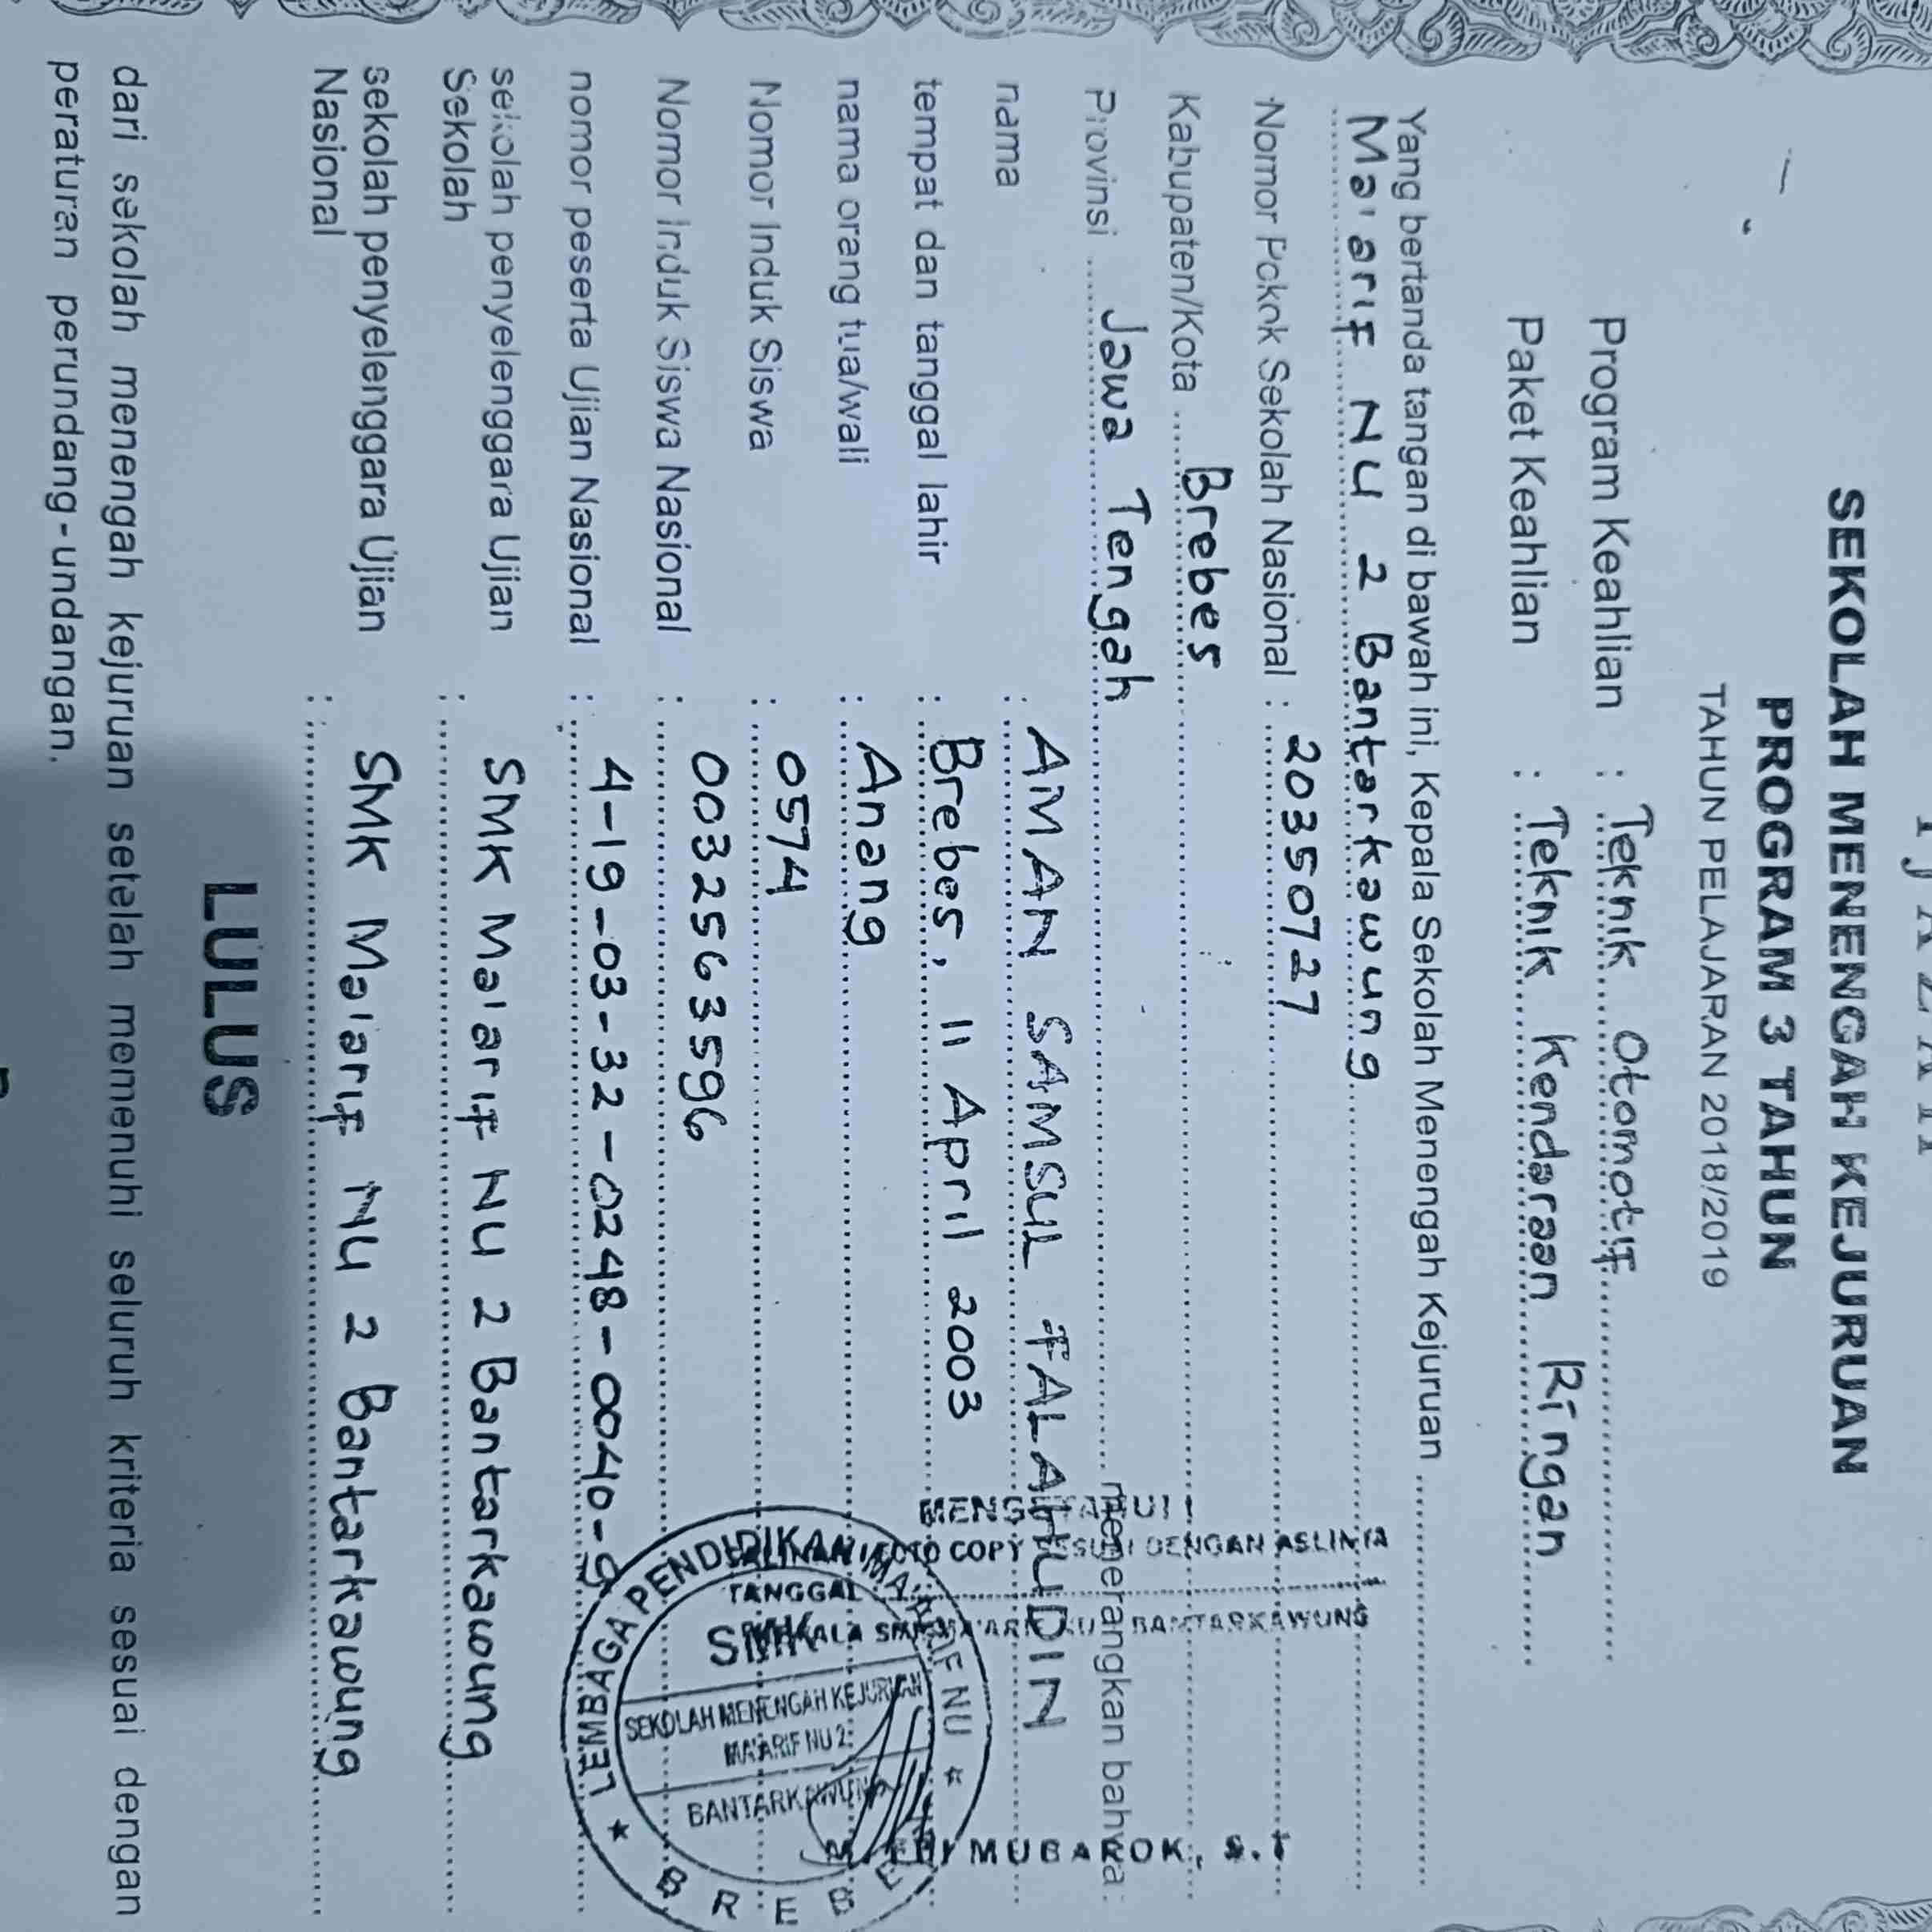 IJAZAH
SEKOLAH MENENGAH KEJURUAN
PROGRAM 3 TAHUN
TAHUN PELAJARAN 2018/2019
Program Keahlian : Teknik Otomotif
Paket Keahlian : Teknik Kendaraan Ringan
Yang bertanda tangan di bawah ini, Kepala Sekolah Menengah Kejuruan
Ma'arif NU 2 Bantarkawung
Nomor Pokok Sekolah Nasional : 20350727
Kabupaten/Kota Brebes
Provinsi Jawa Tengah menerangkan bahwa:
nama : AMAN SAMSUL FALAHUDIN
tempat dan tanggal lahir : Brebes, 11 April 2003
nama orang tua/wali : Anang
Nomor Induk Siswa : 0574
Nomor Induk Siswa Nasional : 0032563596
nomor peserta Ujian Nasional : 4-19-03-32-0248-0040-9
sekolah penyelenggara Ujian
Sekolah : SMK Ma'arif NU 2 Bantarkawung
sekolah penyelenggara Ujian
Nasional : SMK Ma'arif NU 2 Bantarkawung
LULUS
dari sekolah menengah kejuruan setelah memenuhi seluruh kriteria sesuai dengan
peraturan perundang-undangan.
MENGETAHUI
SALINAN / FOTO COPY SESUAI DENGAN ASLINYA
TANGGAL
KEPALA SMK MA'ARIF NU 2 BANTARKAWUNG
LEMBAGA PENDIDIKAN MA'ARIF NU
SMK
SEKOLAH MENENGAH KEJURUAN
MA'ARIF NU 2
BANTARKAWUNG
BREBES
MUBAROK, S.T